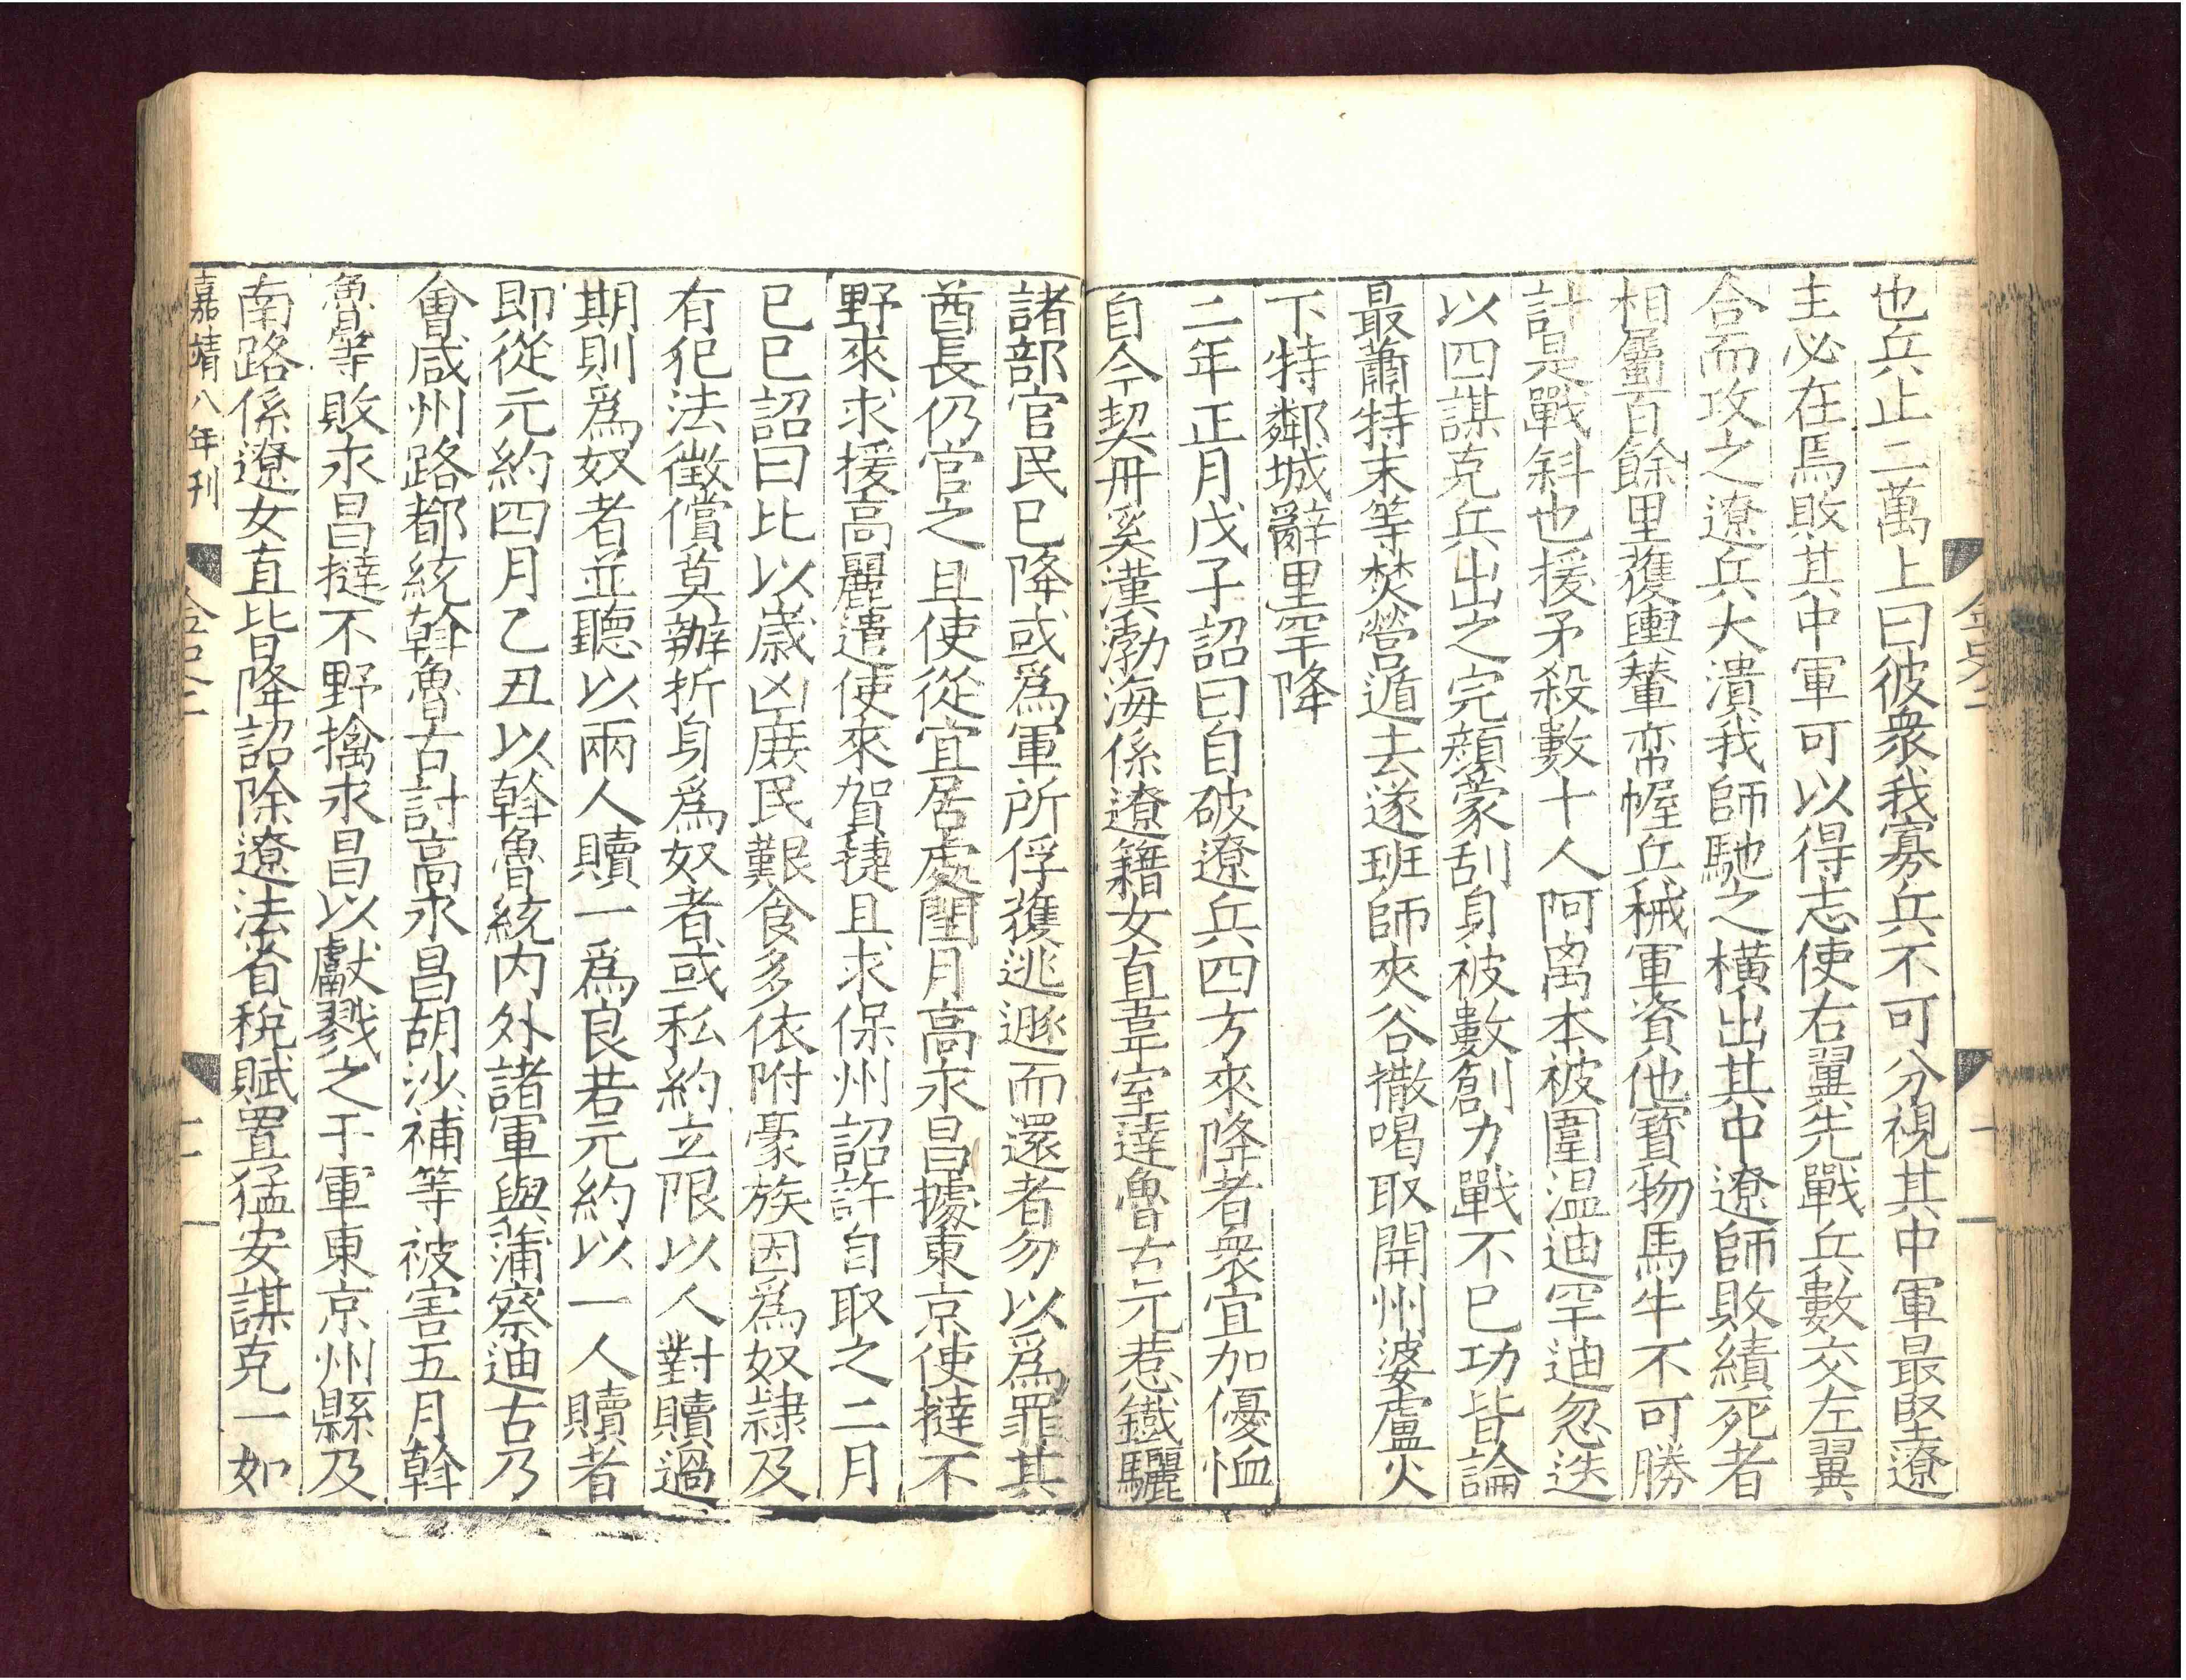 也兵止二萬上曰彼衆我寡兵不可分視其中軍最堅遼
主必在焉敗其中軍可以得志使右翼先戰兵數交左翼
合而攻之遼兵大潰我師馳之橫出其中遼師敗績死者
相屬百餘里獲輿輦帟幄兵械軍資他寳物馬牛不可勝
計是戰斜也援矛殺數十人阿离本被圍温迪罕迪忽迭
以四謀克兵出之完顔蒙刮身被數創力戰不已功皆論
最蕭特末等焚營遁去遂班師夾谷撒喝取開州婆盧火
下特鄰城辭里罕降
二年正月戊子詔曰自破遼兵四方來降者衆宜加優恤
自今契丹奚漢渤海係遼籍女直室韋達魯古兀惹鐵驪
諸部官民已降或爲軍所俘獲逃遯而還者勿以爲罪其
酋長仍官之且使從宜居處閏月高永昌據東京使撻不
野來求援高麗遣使來賀捷且求保州詔許自取之二月
己巳詔曰比以歳凶庻民艱食多依附豪族因爲奴隷及
有犯法徵償莫辦折身爲奴者或私約立限以人對贖過
期則爲奴者並聽以兩人贖一爲良若元約以一人贖者
即從元約四月乙丑以斡魯統内外諸軍與蒲察迪古乃
會咸州路都統斡魯古討高永昌胡沙補等被害五月斡
魯等敗永昌撻不野擒永昌以獻戮之于軍東京州縣及
南路係遼女直皆降詔除遼法省稅賦置猛安謀克一如
嘉靖八年刊
金史二
二